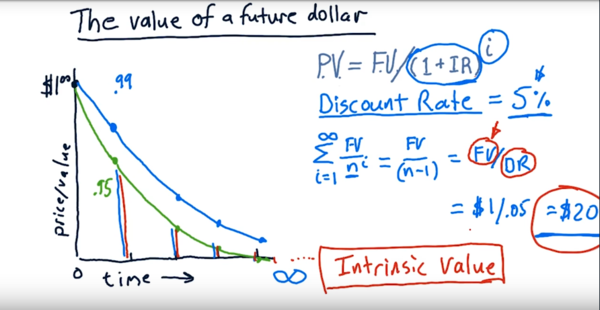 The value of a future dollar
$1.00
.99
.95
price/value
0
time →
∞
PV = FV/(1+IR)^i
Discount Rate = 5%
∑_{i=1}^{∞} FV/n^i = FV/(n-1) = FV/DR
= $1/.05 = $20
Intrinsic Value